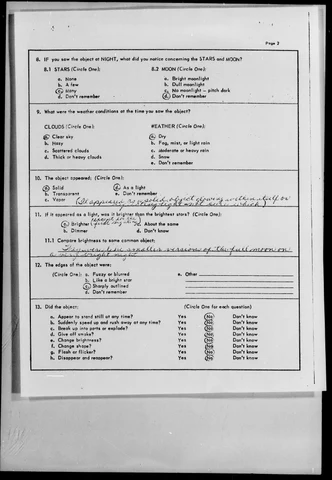 Page 2
8. IF you saw the object at NIGHT, what did you notice concerning the STARS and MOON?
8.1 STARS (Circle One): 8.2 MOON (Circle One):
a. None a. Bright moonlight
b. A few b. Dull moonlight
c. Many c. No moonlight – pitch dark
d. Don't remember d. Don't remember
9. What were the weather conditions at the time you saw the object?
CLOUDS (Circle One): WEATHER (Circle One):
a. Clear sky a. Dry
b. Hazy b. Fog, mist, or light rain
c. Scattered clouds c. Moderate or heavy rain
d. Thick or heavy clouds d. Snow
e. Don't remember
10. The object appeared: (Circle One):
a. Solid d. As a light
b. Transparent e. Don't remember
c. Vapor (It appeared as solid object
11. If it appeared as a light, was it brighter than the brightest stars? (Circle One):
a. Brighter c. About the same
b. Dimmer d. Don't know
11.1 Compare brightness to some common object:
smaller versions of the full moon on
a very bright night
12. The edges of the object were:
(Circle One): a. Fuzzy or blurred e. Other
b. Like a bright star
c. Sharply outlined
d. Don't remember
13. Did the object: (Circle One for each question)
a. Appear to stand still at any time? Yes No Don't know
b. Suddenly speed up and rush away at any time? Yes No Don't know
c. Break up into parts or explode? Yes No Don't know
d. Give off smoke? Yes No Don't know
e. Change brightness? Yes No Don't know
f. Change shape? Yes No Don't know
g. Flash or flicker? Yes No Don't know
h. Disappear and reappear? Yes No Don't know